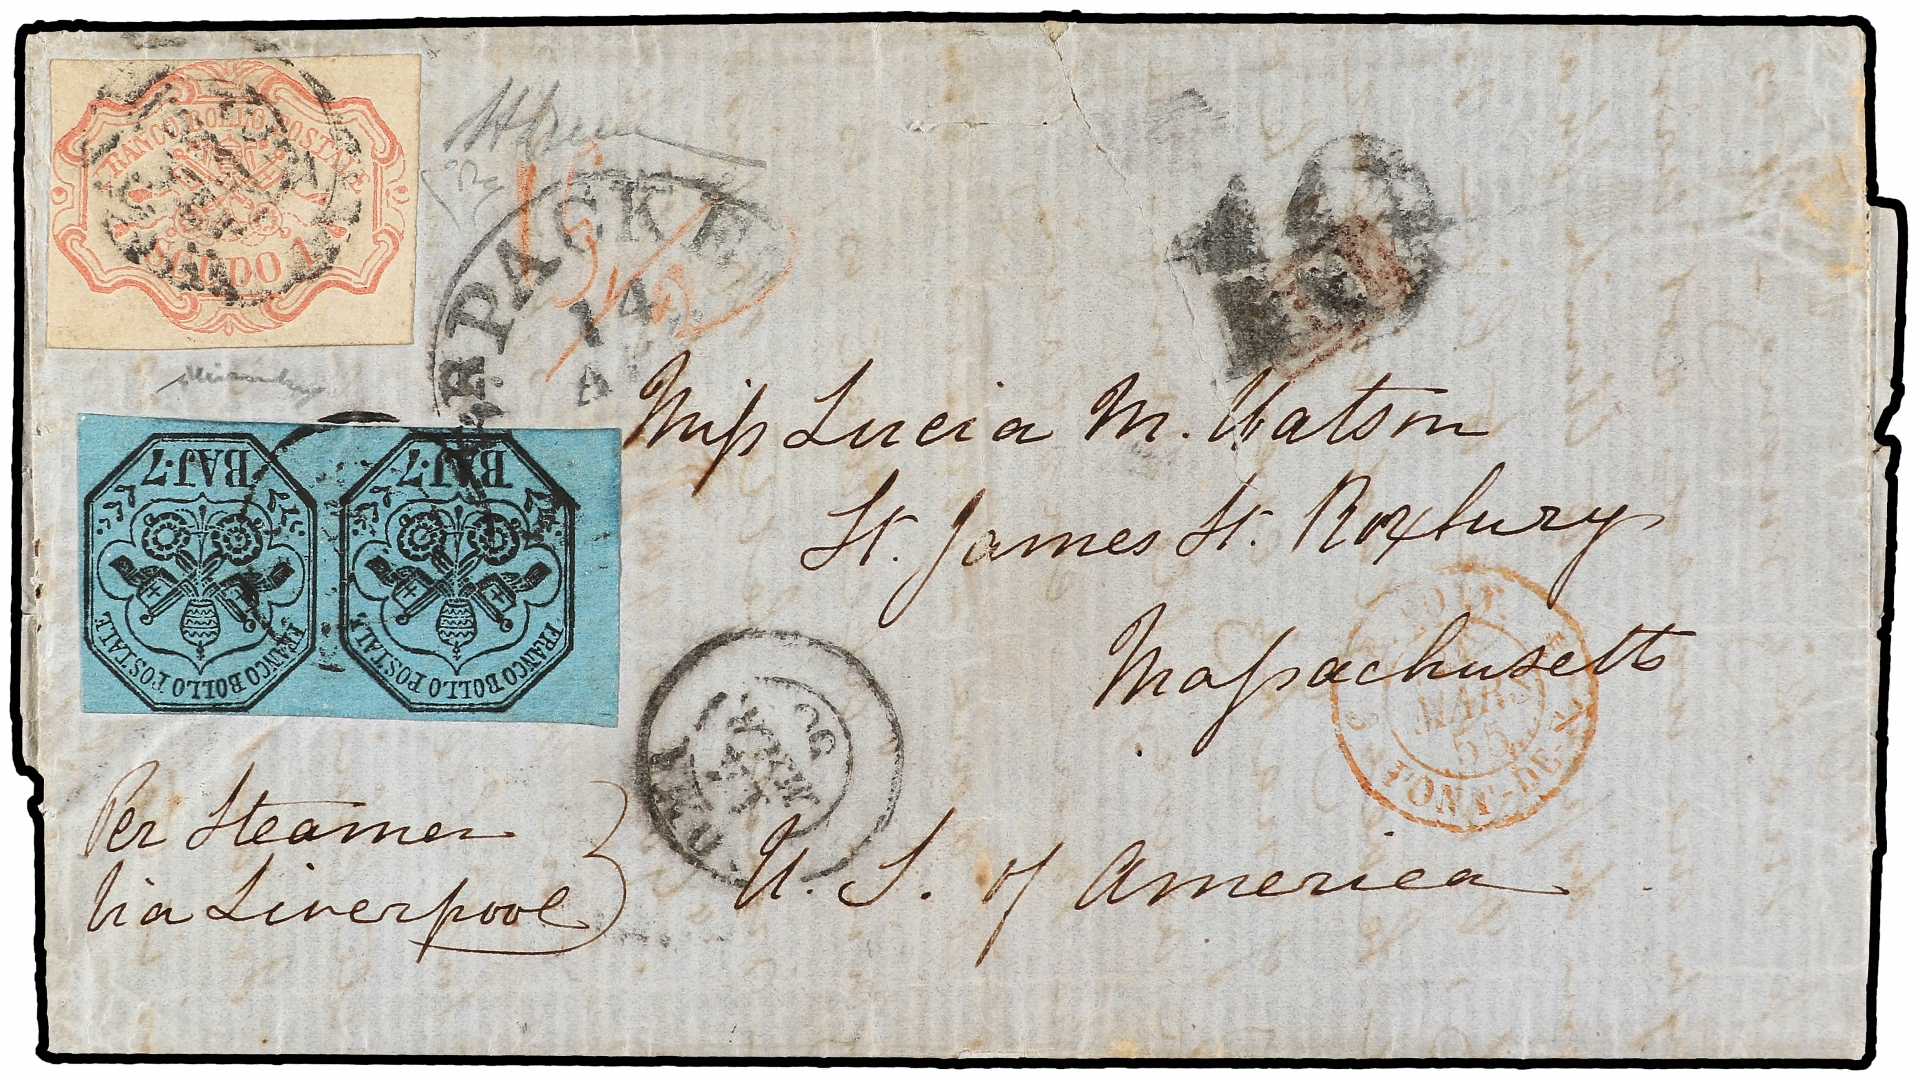 FRANCO BOLLO POSTALE
SCUDO 1
PACKET
14
AP
Miss Lucia M. Watson
St. James St. Roxbury
Massachusetts
U. S. of America
BAJ. 7
FRANCO BOLLO POSTALE
BAJ. 7
FRANCO BOLLO POSTALE
ROMA
55
MARS
55
PONT-DE-
Per Steamer
Via Liverpool